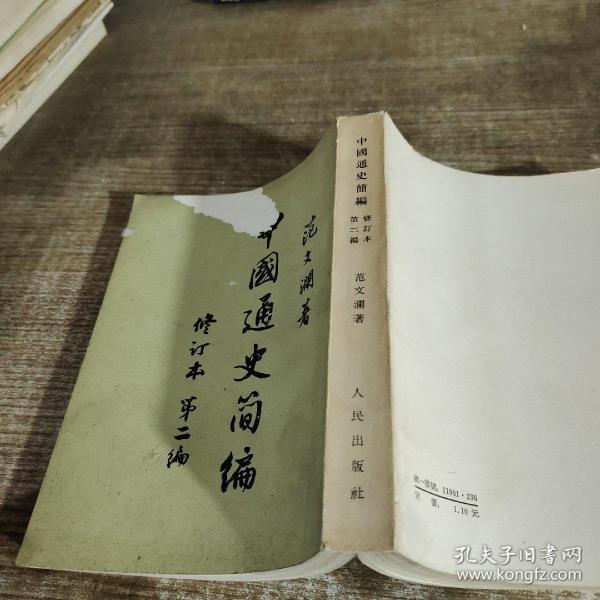 范文瀾著
中國通史簡編
修订本 第二編
中國通史簡編 修訂本 第二編 范文瀾著 人民出版社
統一書號：11001·236
定價：1.10元
孔夫子旧书网
www.kongfz.com